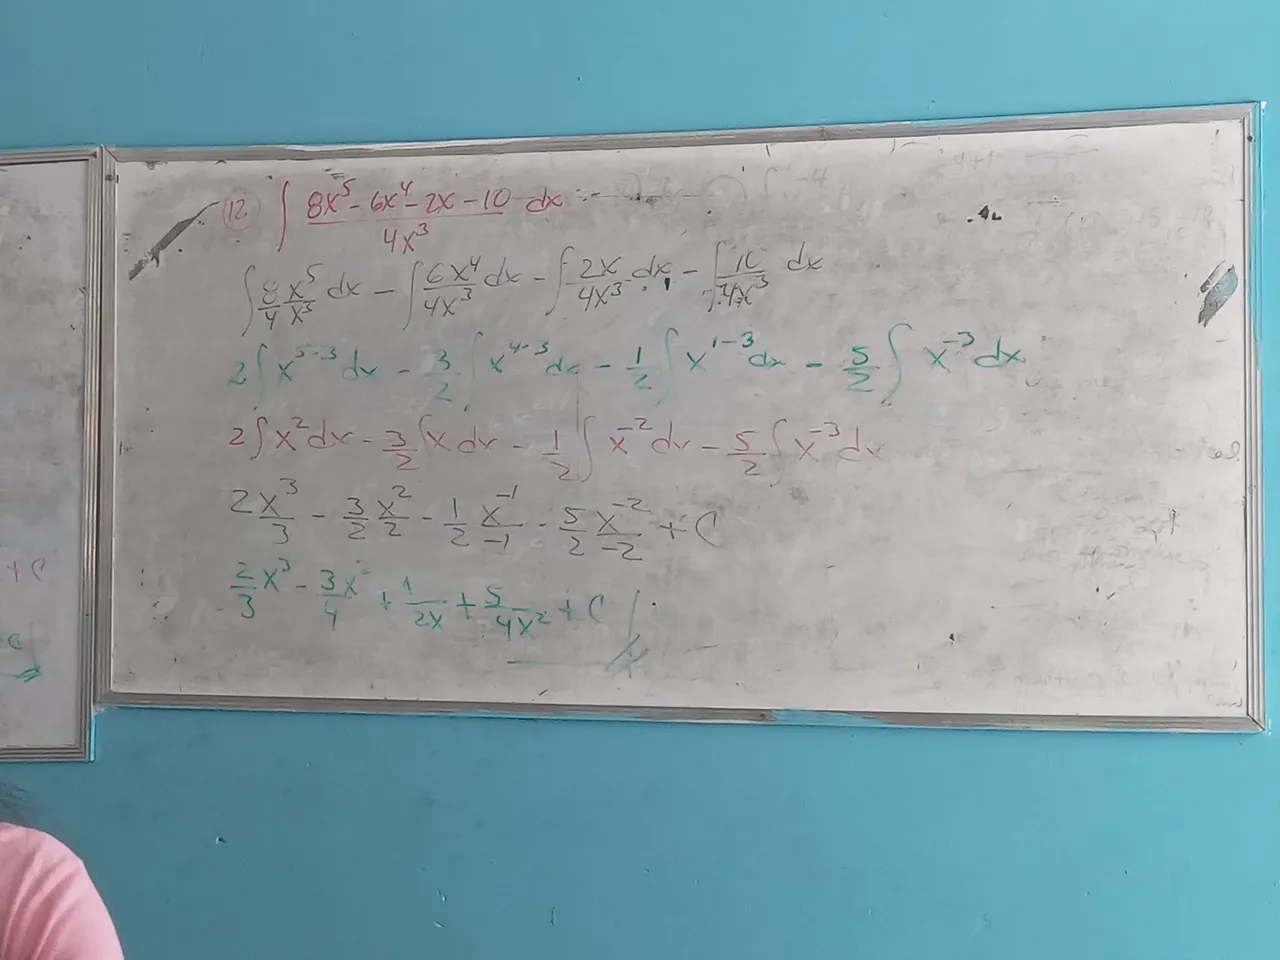 ⑫ ∫ (8x⁵ - 6x⁴ - 2x - 10)/(4x³) dx
∫ 8/4 x⁵/x³ dx - ∫ 6x⁴/4x³ dx - ∫ 2x/4x³ dx - ∫ 10/4x³ dx
2∫ x⁵⁻³ dx - 3/2 ∫ x⁴⁻³ dx - 1/2 ∫ x¹⁻³ dx - 5/2 ∫ x⁻³ dx
2∫ x² dx - 3/2 ∫ x dx - 1/2 ∫ x⁻² dx - 5/2 ∫ x⁻³ dx
2 x³/3 - 3/2 x²/2 - 1/2 x⁻¹/-1 - 5/2 x⁻²/-2 + C
2/3 x³ - 3x²/4 + 1/2x + 5/4x² + C
+ C